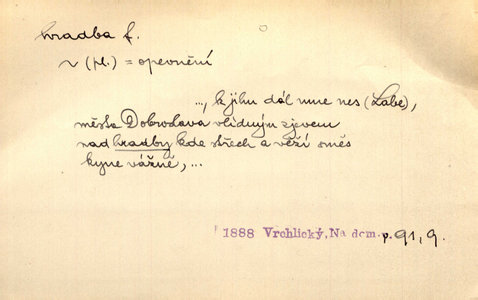 hradba f.
~ (pl.) = opevnění
..., k jihu dál mne nes (Labe),
města Dobroslava vlídným zjevem
nad hradby kde střech a věží směs
kyne vážně, ...
1888 Vrchlický, Na dom. p. 91, 9.